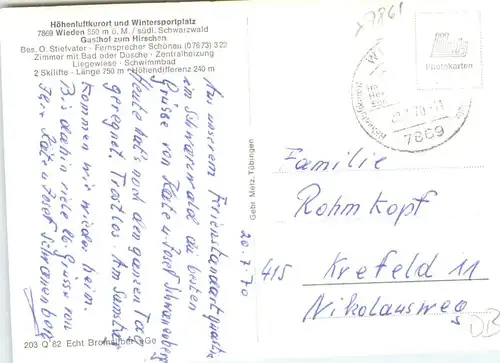 Höhenluftkurort und Wintersportplatz
7869 Wieden 850 m ü. M. / südl. Schwarzwald
Gasthof zum Hirschen
Bes. O. Stiefvater · Fernsprecher Schönau (07673) 3 22
Zimmer mit Bad oder Dusche · Zentralheizung
Liegewiese · Schwimmbad
2 Skilifte · Länge 750 m · Höhendifferenz 240 m
20.7.70
Aus unserem
im Schwarzwald die besten
Grüße von Käte u. Josef
Heute hat's noch den ganzen Tag
geregnet. Trostlos. Am Samstag
kommen wir wieder heim.
Bis dahin viele lb. Grüsse von
Käte u Josef
203 Q 82 Echt Bromsilber
Gebr. Metz, Tübingen
7861
Photokarten
7869
Familie
Rohmkopf
415 Krefeld 11
Nikolausweg
DB